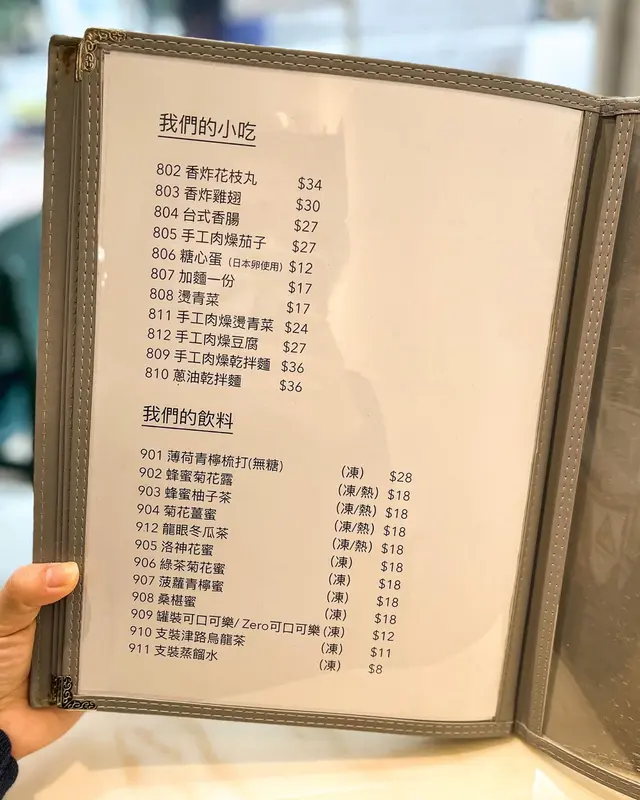 我們的小吃
802 香炸花枝丸 $34
803 香炸雞翅 $30
804 台式香腸 $27
805 手工肉燥茄子 $27
806 糖心蛋 (日本卵使用) $12
807 加麵一份 $17
808 燙青菜 $17
811 手工肉燥燙青菜 $24
812 手工肉燥豆腐 $27
809 手工肉燥乾拌麵 $36
810 蔥油乾拌麵 $36
我們的飲料
901 薄荷青檸梳打(無糖) (凍) $28
902 蜂蜜菊花露 (凍/熱) $18
903 蜂蜜柚子茶 (凍/熱) $18
904 菊花薑蜜 (凍/熱) $18
912 龍眼冬瓜茶 (凍/熱) $18
905 洛神花蜜 (凍) $18
906 綠茶菊花蜜 (凍) $18
907 菠蘿青檸蜜 (凍) $18
908 桑椹蜜 (凍) $18
909 罐裝可口可樂/ Zero可口可樂 (凍) $12
910 支裝津路烏龍茶 (凍) $11
911 支裝蒸餾水 (凍) $8